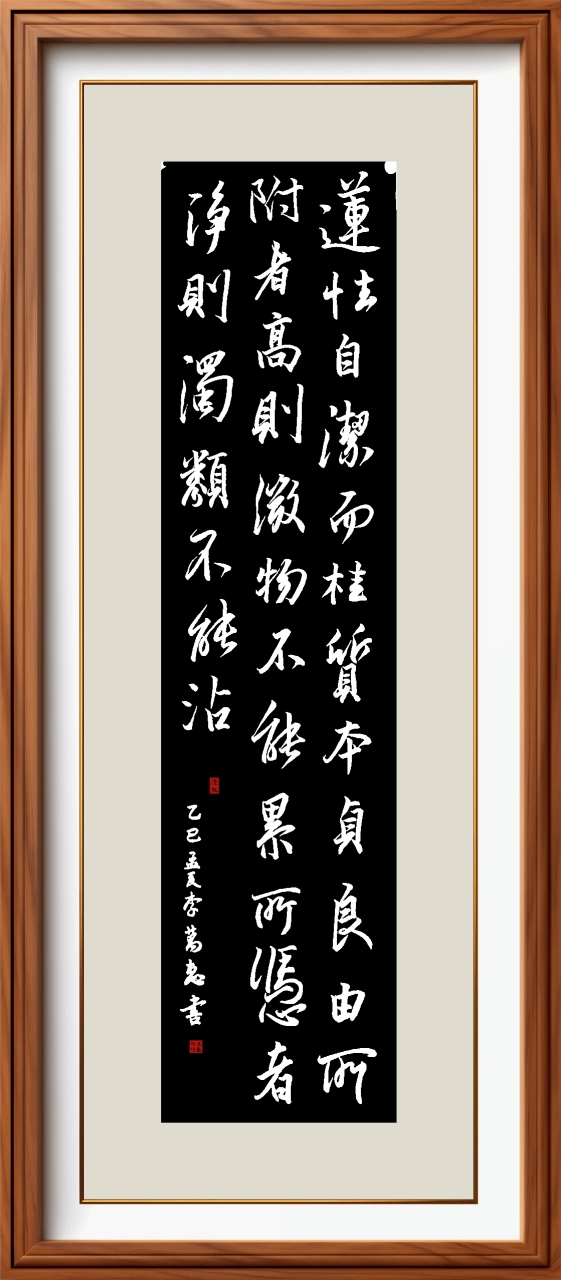 蓮性自潔而桂質本貞良由所
附者高則微物不能累所憑者
淨則濁類不能沾
乙巳孟夏李萬忠書